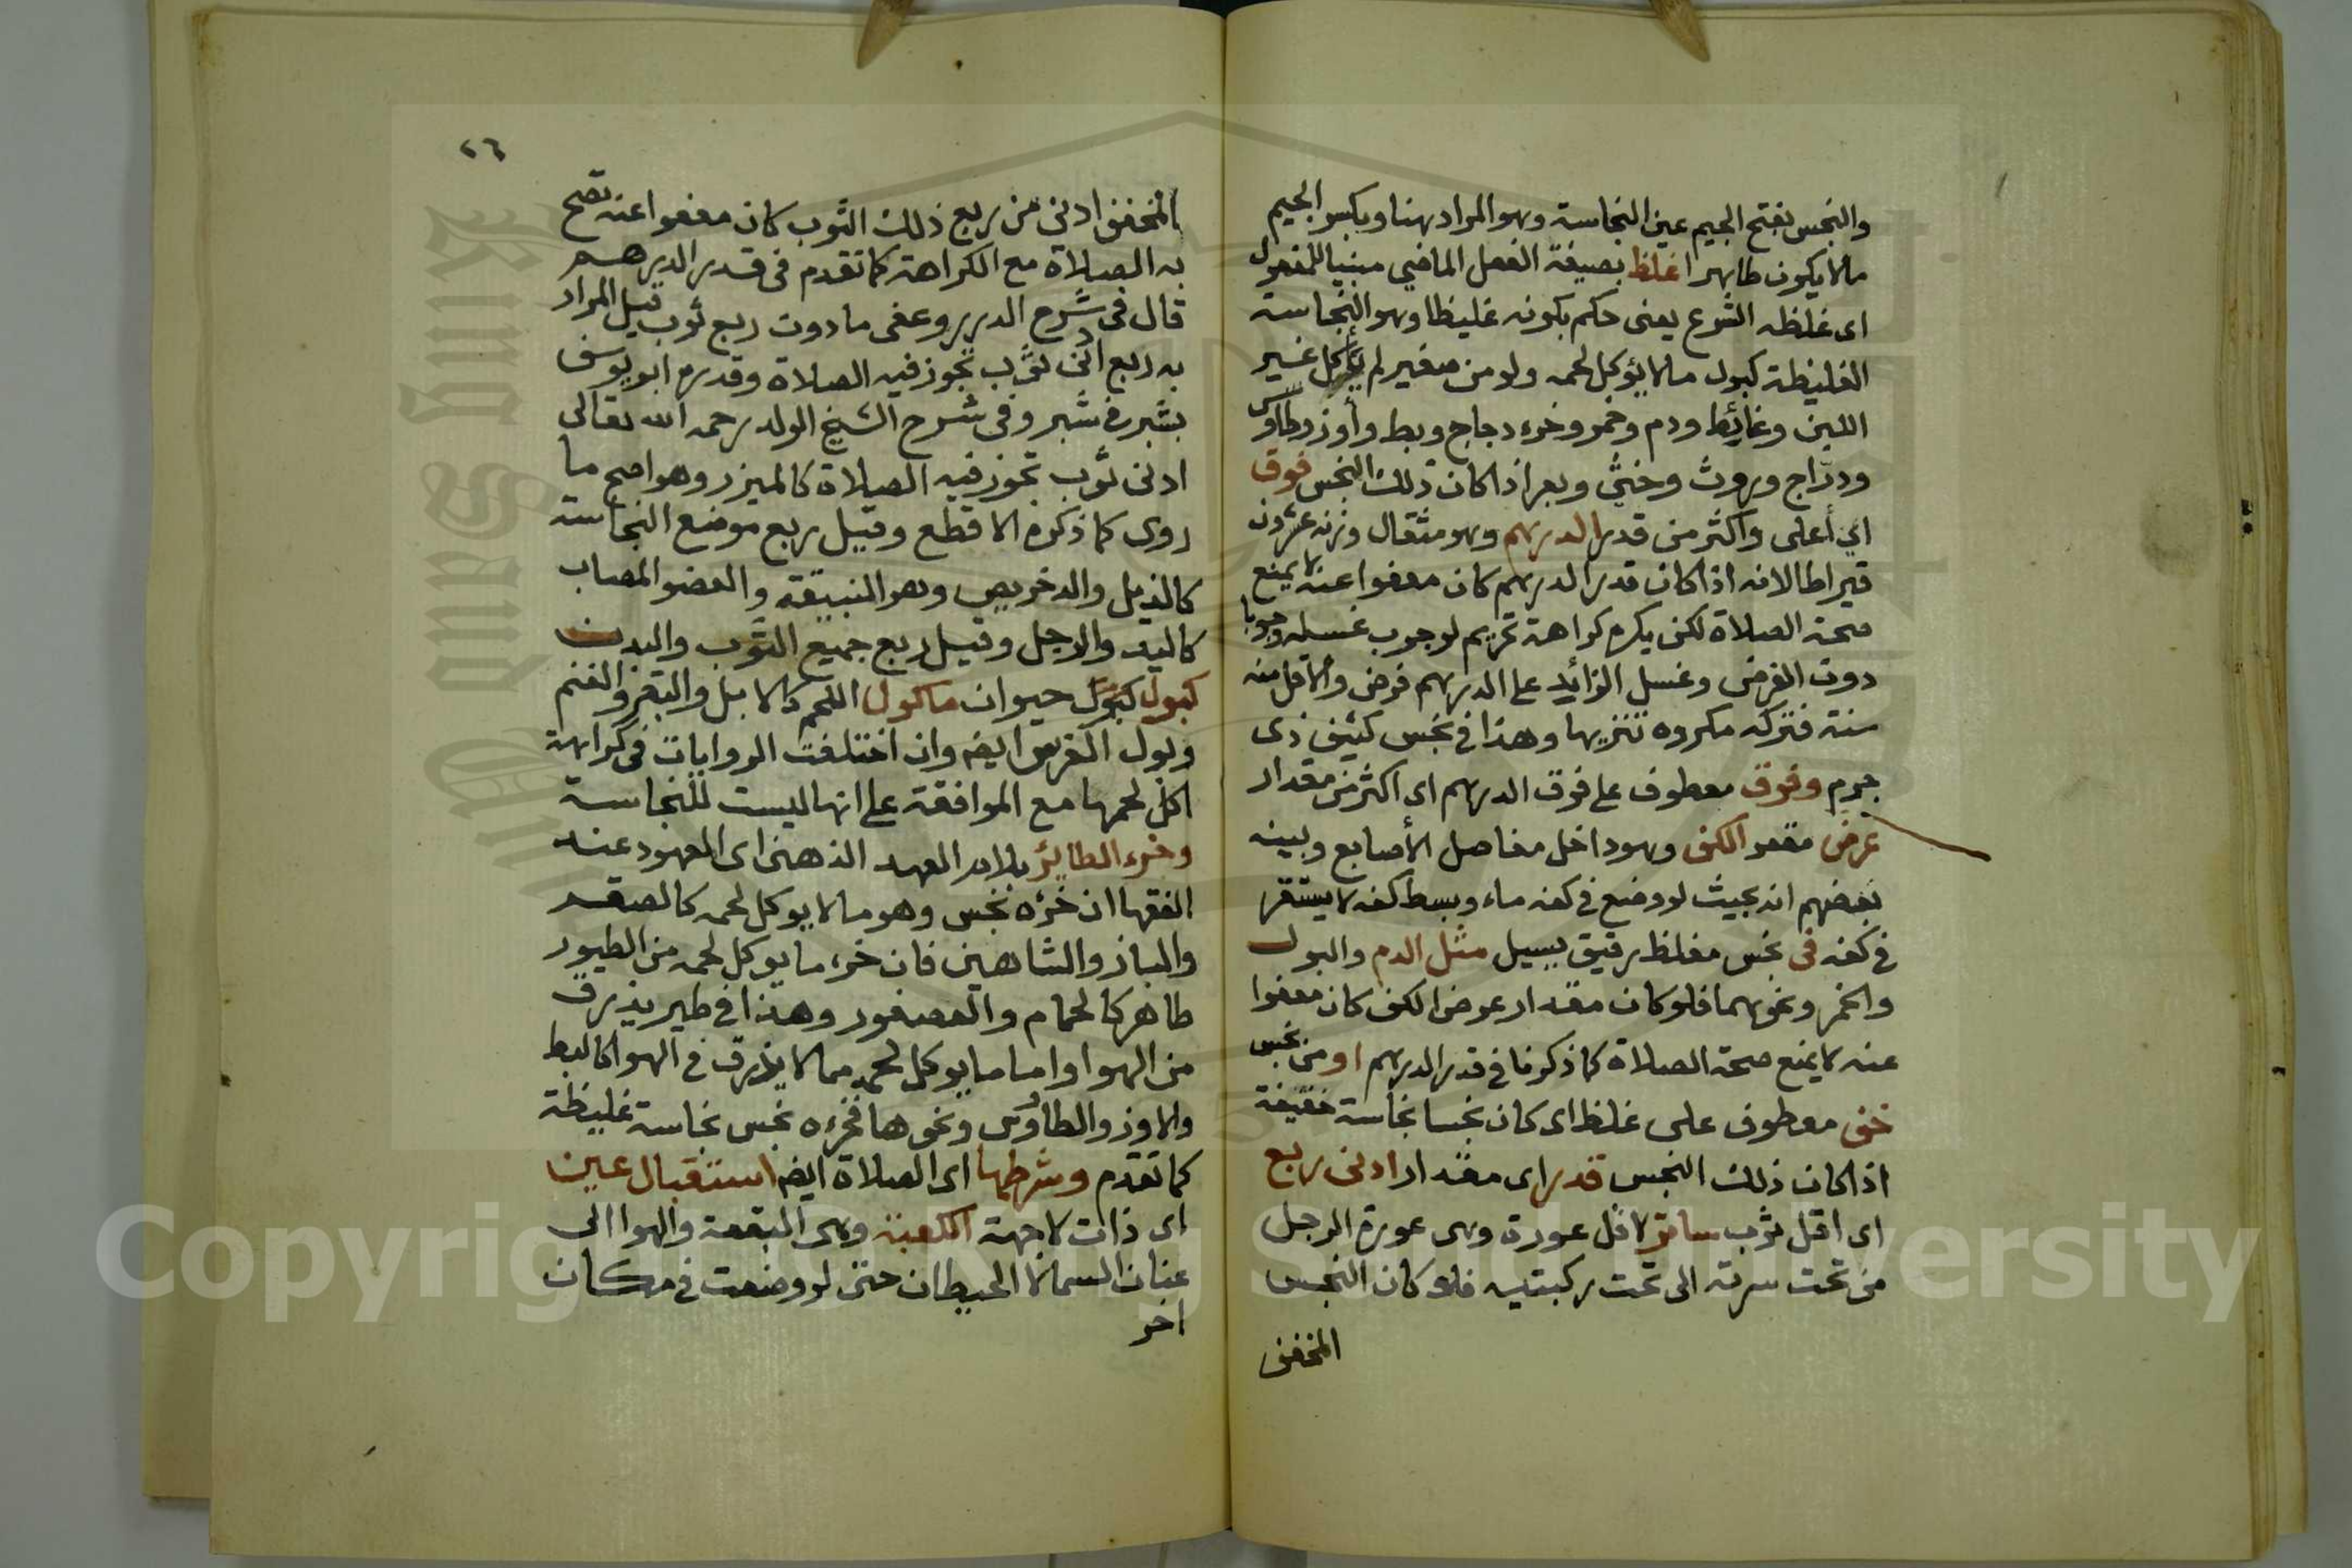 والنجس بفتح الجيم عين النجاسة وهو المراد هنا وبكسر الجيم
مالا يكون طاهرا اغلظ بصيغة الفعل الماضي مبنيا للمفعول
اى غلظه الشرع يعنى حكم بكونه غليظا وهو النجاسة
الغليظة كبول مالا يؤكل لحمه ولو من صغير لم يأكل غير
اللبن وغائط ودم وخمر وخرء دجاج وبط وأوز وطاوس
ودرّاج وروث وخثي وبعر اذا كان ذلك النجس فوق
اي أعلى واكثر من قدر الدرهم وهو مثقال وزنه عشرون
قيراطا لانه اذا كان قدر الدرهم كان معفوا عنه لا يمنع
صحة الصلاة لكن يكره كراهة تحريم لوجوب غسله وجوبا
دون الفرض وغسل الزائد على الدرهم فرض والاقل منه
سنة فتركه مكروه تنزيها وهذا في نجس كثيف ذى
جرم وفوق معطوف على فوق الدرهم اى اكثر من مقدار
عرض مقعر الكف وهو داخل مفاصل الأصابع وبينه
بعضهم انه بحيث لو وضع في كفه ماء وبسط كفه لا يستقر
في كفه فى نجس مغلظ رقيق يسيل مثل الدم والبول
والخمر ونحوهما فلو كان مقدار عرض الكف كان معفوا
عنه لا يمنع صحة الصلاة كما ذكرنا في قدر الدرهم او من نجس
خف معطوف على غلظ اى كان نجسا نجاسة خفيفة
اذا كان ذلك النجس قدر اى مقدار ادنى ربع
اى اقل ثوب ساتر لاقل عورة وهى عورة الرجل
من تحت سرته الى تحت ركبتيه فلو كان النجس
المخفف
٢٦
المخفف ادنى من ربع ذلك الثوب كان معفوا عنه تصح
به الصلاة مع الكراهة كما تقدم فى قدر الدرهم
قال فى شرح الدرر وعفى ما دون ربع ثوب قيل المراد
به ربع ادنى ثوب تجوز فيه الصلاة وقدره ابو يوسف
بشبر في شبر وفى شرح الشيخ الوالد رحمه الله تعالى
ادنى ثوب تجوز فيه الصلاة كالميزر وهو اصح ما
روى كما ذكره الاقطع وقيل ربع موضع النجاسة
كالذيل والدخريص وهو البنيقة والعضو المصاب
كاليد والرجل وقيل ربع جميع الثوب والبدن
كبول كبول حيوان ماكول اللحم كالابل والبقر والغنم
وبول الفرس ايضه وان اختلفت الروايات فى كراهة
اكل لحمها مع الموافقة على انها ليست للنجاسة
وخرء الطائر بلام العهد الذهنى اى المعهود عند
الفقها ان خرؤه نجس وهو مالا يوكل لحمه كالصقر
والباز والشاهين فان خرء ما يوكل لحمه من الطيور
طاهر كالحمام والعصفور وهذا في طير يذرق
من الهوا واما ما يوكل لحمه مما لا يذرق في الهوا كالبط
والاوز والطاوس ونحوها فخرءه نجس نجاسة غليظة
كما تقدم وشرطها اى الصلاة ايضه استقبال عين
اى ذات لاجهة الكعبة وهى البقعة والهوا الى
عنان السما لا الحيطان حتى لو وضعت في مكان
اخر
Copyright © King Saud University